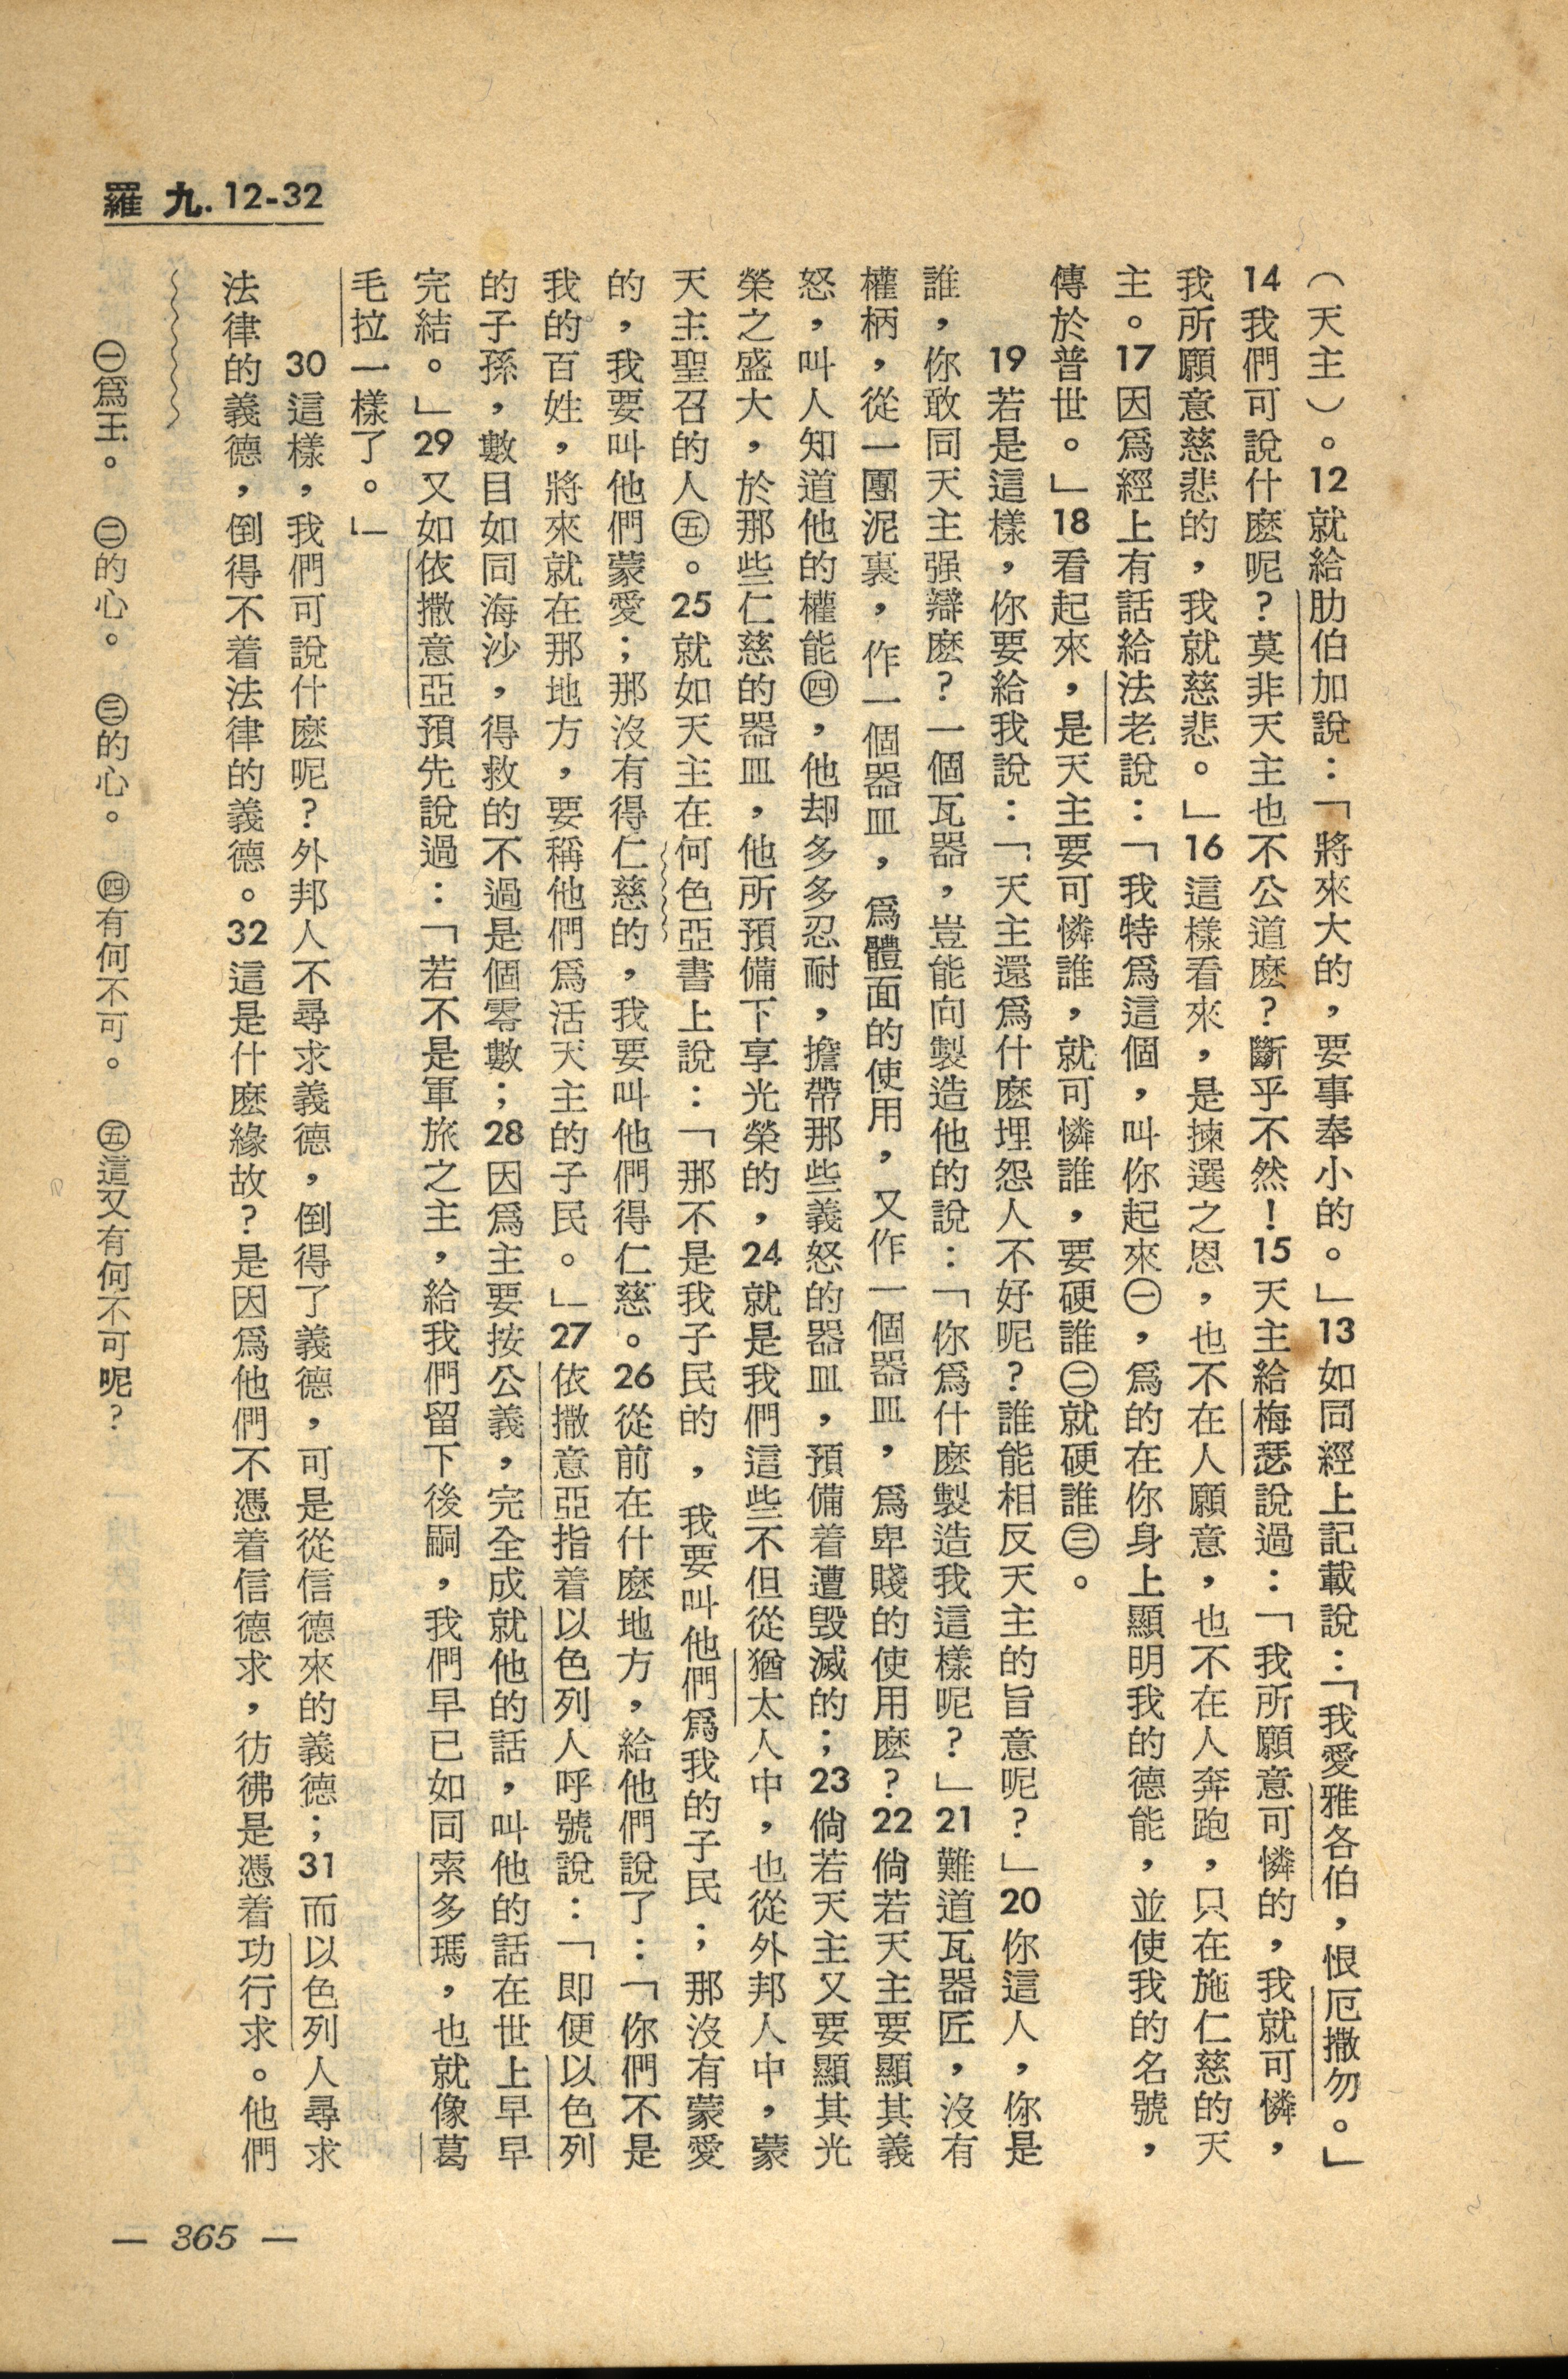 羅 九. 12-32
（天主）。12就給肋伯加說：「將來大的，要事奉小的。」13如同經上記載說：「我愛雅各伯，恨厄撒勿。」
14我們可說什麽呢？莫非天主也不公道麽？斷乎不然！15天主給梅瑟說過：「我所願意可憐的，我就可憐，
我所願意慈悲的，我就慈悲。」16這樣看來，是揀選之恩，也不在人願意，也不在人奔跑，只在施仁慈的天
主。17因爲經上有話給法老說：「我特爲這個，叫你起來㊀，爲的在你身上顯明我的德能，並使我的名號，
傳於普世。」18看起來，是天主要可憐誰，就可憐誰，要硬誰㊁就硬誰㊂。
19若是這樣，你要給我說：「天主還爲什麽埋怨人不好呢？誰能相反天主的旨意呢？」20你這人，你是
誰，你敢同天主强辯麽？一個瓦器，豈能向製造他的說：「你爲什麽製造我這樣呢？」21難道瓦器匠，沒有
權柄，從一團泥裏，作一個器皿，爲體面的使用，又作一個器皿，爲卑賤的使用麽？22倘若天主要顯其義
怒，叫人知道他的權能㊃，他却多多忍耐，擔帶那些義怒的器皿，預備着遭毁滅的；23倘若天主又要顯其光
榮之盛大，於那些仁慈的器皿，他所預備下享光榮的，24就是我們這些不但從猶太人中，也從外邦人中，蒙
天主聖召的人㊄。25就如天主在何色亞書上說：「那不是我子民的，我要叫他們爲我的子民；那沒有蒙愛
的，我要叫他們蒙愛；那沒有得仁慈的，我要叫他們得仁慈。26從前在什麽地方，給他們說了：「你們不是
我的百姓，將來就在那地方，要稱他們爲活天主的子民。」27依撒意亞指着以色列人呼號說：「即便以色列
的子孫，數目如同海沙，得救的不過是個零數；28因爲主要按公義，完全成就他的話，叫他的話在世上早早
完結。」29又如依撒意亞預先說過：「若不是軍旅之主，給我們留下後嗣，我們早已如同索多瑪，也就像葛
毛拉一樣了。」
30這樣，我們可說什麽呢？外邦人不尋求義德，倒得了義德，可是從信德來的義德；31而以色列人尋求
法律的義德，倒得不着法律的義德。32這是什麽緣故？是因爲他們不憑着信德求，彷彿是憑着功行求。他們
㊀爲王。 ㊁的心。 ㊂的心。 ㊃有何不可。 ㊄這又有何不可呢？
— 365 —